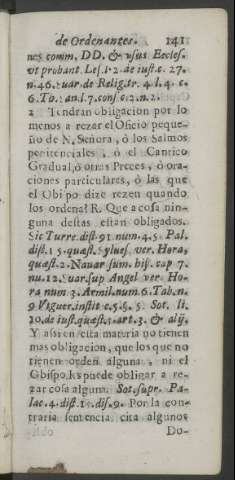 de Ordenantes. 141
nes comm. DD. & usus Eccles.
ut probant Les. l. 2. de iust. c. 27.
n. 46. Suar. de Relig. tr. 4. l. 4. c.
6. To. an. l. 7. cons. c. 2. n. 2.
2 Tendran obligacion por lo
menos a rezar el Oficio peque-
ño de N. Señora, ò los Salmos
penitenciales, ò el Cantico
Gradual, ò otras Preces, ò ora-
ciones particulares, ò las que
el Obispo dize rezen quando
los ordena? R. Que a cosa nin-
guna destas estan obligados.
Sic Turre. dist. 91. num. 4. 5. Pal.
dist. 15. quæst. 5. ylues. ver. Hora,
quæst. 2. Nauar. sum. his. cap. 7.
nu. 12. Suar. sup. Angel. ver. Ho-
ra num. 3. Armil. num. 6. Tab. n.
9. Viguer. instit. c. 5. §. 5. Sot. li.
10. de iust. quæst. 5. art. 3. & alij.
Y assi en esta materia no tienen
mas obligacion, que los que no
tienen orden alguna, ni el
Obispo les puede obligar a re-
zar cosa alguna. Sot. supr. Pa-
lac. 4. dist. 15. dis. 9. Por la con-
traria sentencia cita algunos
Do-